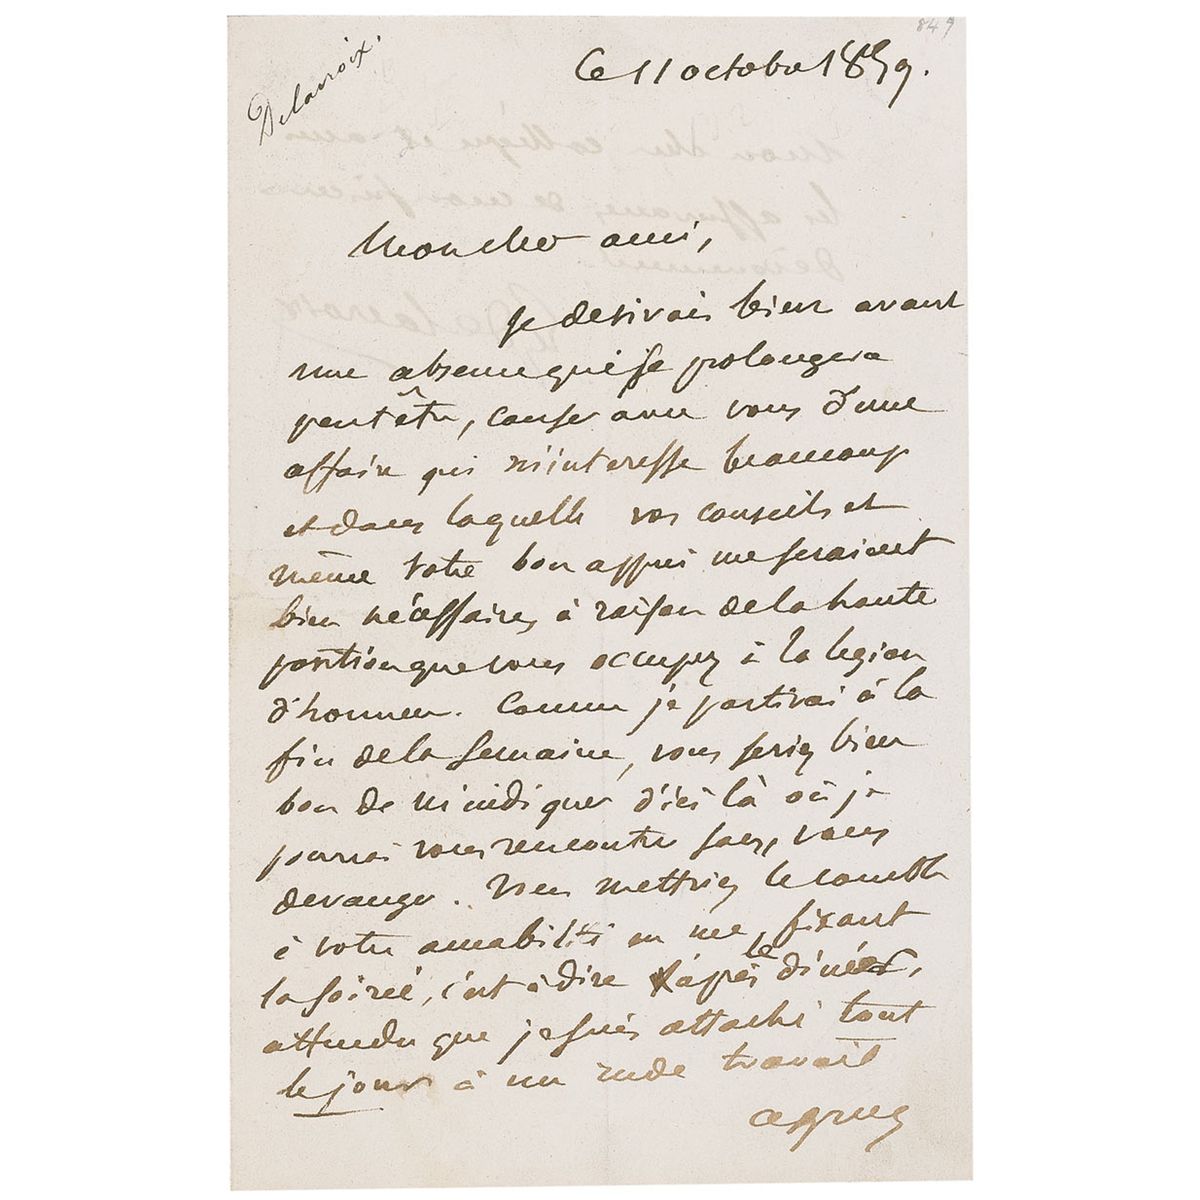 849
Delacroix.
Ce 11 octobre 1859.
Mon cher ami,
je desirais bien avant
une absence qui se prolongera
peut être, causer avec vous d'une
affaire qui m'interesse beaucoup
et dans laquelle vos conseils et
même votre bon appui me seraient
bien nécessaires, à raison de la haute
position que vous occupez à la legion
d'honneur. Comme je partirai à la
fin de la semaine, vous seriez bien
bon de m'indiquer d'ici là où je
pourrai vous rencontrer sans vous
deranger. Vous mettriez le comble
à votre amabilité en me fixant
la soirée, c'est à dire après le diner,
attendu que je suis attaché tout
le jour à un rude travail
agreez
mon cher collegue et ami
les assurances de mon sincere
devouement.
EugDelacroix